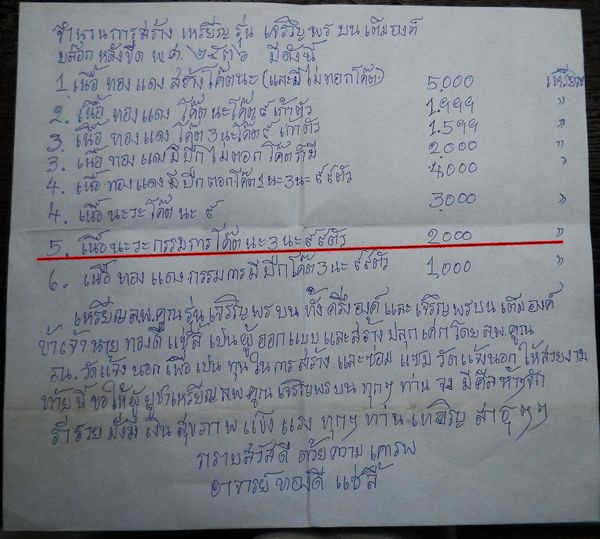 จำนวนการสร้าง เหรียญ รุ่น เจริญพร บน เต็มองค์
บล๊อก หลังขีด พ.ศ. ๒๕๓๖ มีดังนี้
1. เนื้อ ทองแดง สร้างโค๊ตนะ (และมีไม่ตอกโค๊ต) 5,000 เหรียญ
2. เนื้อ ทองแดง โค๊ต นะโค๊ต ๙ เก้าตัว 1,999 "
3. เนื้อ ทองแดง โค๊ต 3 นะโค๊ต ๙ เก้าตัว 1,599 "
3. เนื้อ ทองแดง มีปีก ไม่ตอก โค๊ตก็มี 2,000 "
4. เนื้อ ทองแดง มีปีกตอกโค๊ต 1 นะ 3 นะ ๙ ๙ตัว 4,000
4. เนื้อ นะวะ โค๊ต นะ ๙ 3,000 "
5. เนื้อ นะวะ กรรมการ โค๊ต นะ 3 นะ ๙ ๙ตัว 2,000 "
6. เนื้อ ทองแดง กรรมการ มีปีกโค๊ต 3 นะ ๙ ๙ตัว 1,000 "
เหรียญ ลพ.คูณ รุ่น เจริญพร บน ทั้ง ครึ่งองค์ และ เจริญพร บน เต็มองค์
ข้าเจ้านาย ทองดี แซ่ลี้ เป็น ผู้ ออกแบบ และ สร้าง ปลุกเศกโดย ลพ.คูณ
ณ. วัดแจ้ง นอก เพื่อ เป็น ทุน ในการ สร้าง และซ่อม แซม วัดแจ้งนอก ให้สวยงาม
ท้ายนี้ ขอให้ผู้ บูชาเหรียญ ลพ.คูณ เจริญพร บน ทุกๆ ท่าน จง มี ศีลห้าๆจัก
ร่ำรวย มั่งมี เงิน สุขภาพ แข็ง แรง ทุกๆ ท่าน เทอญ สาธุๆๆ
กราบสวัสดี ด้วยความ เคารพ
อาจารย์ ทองดี แซ่ลี้